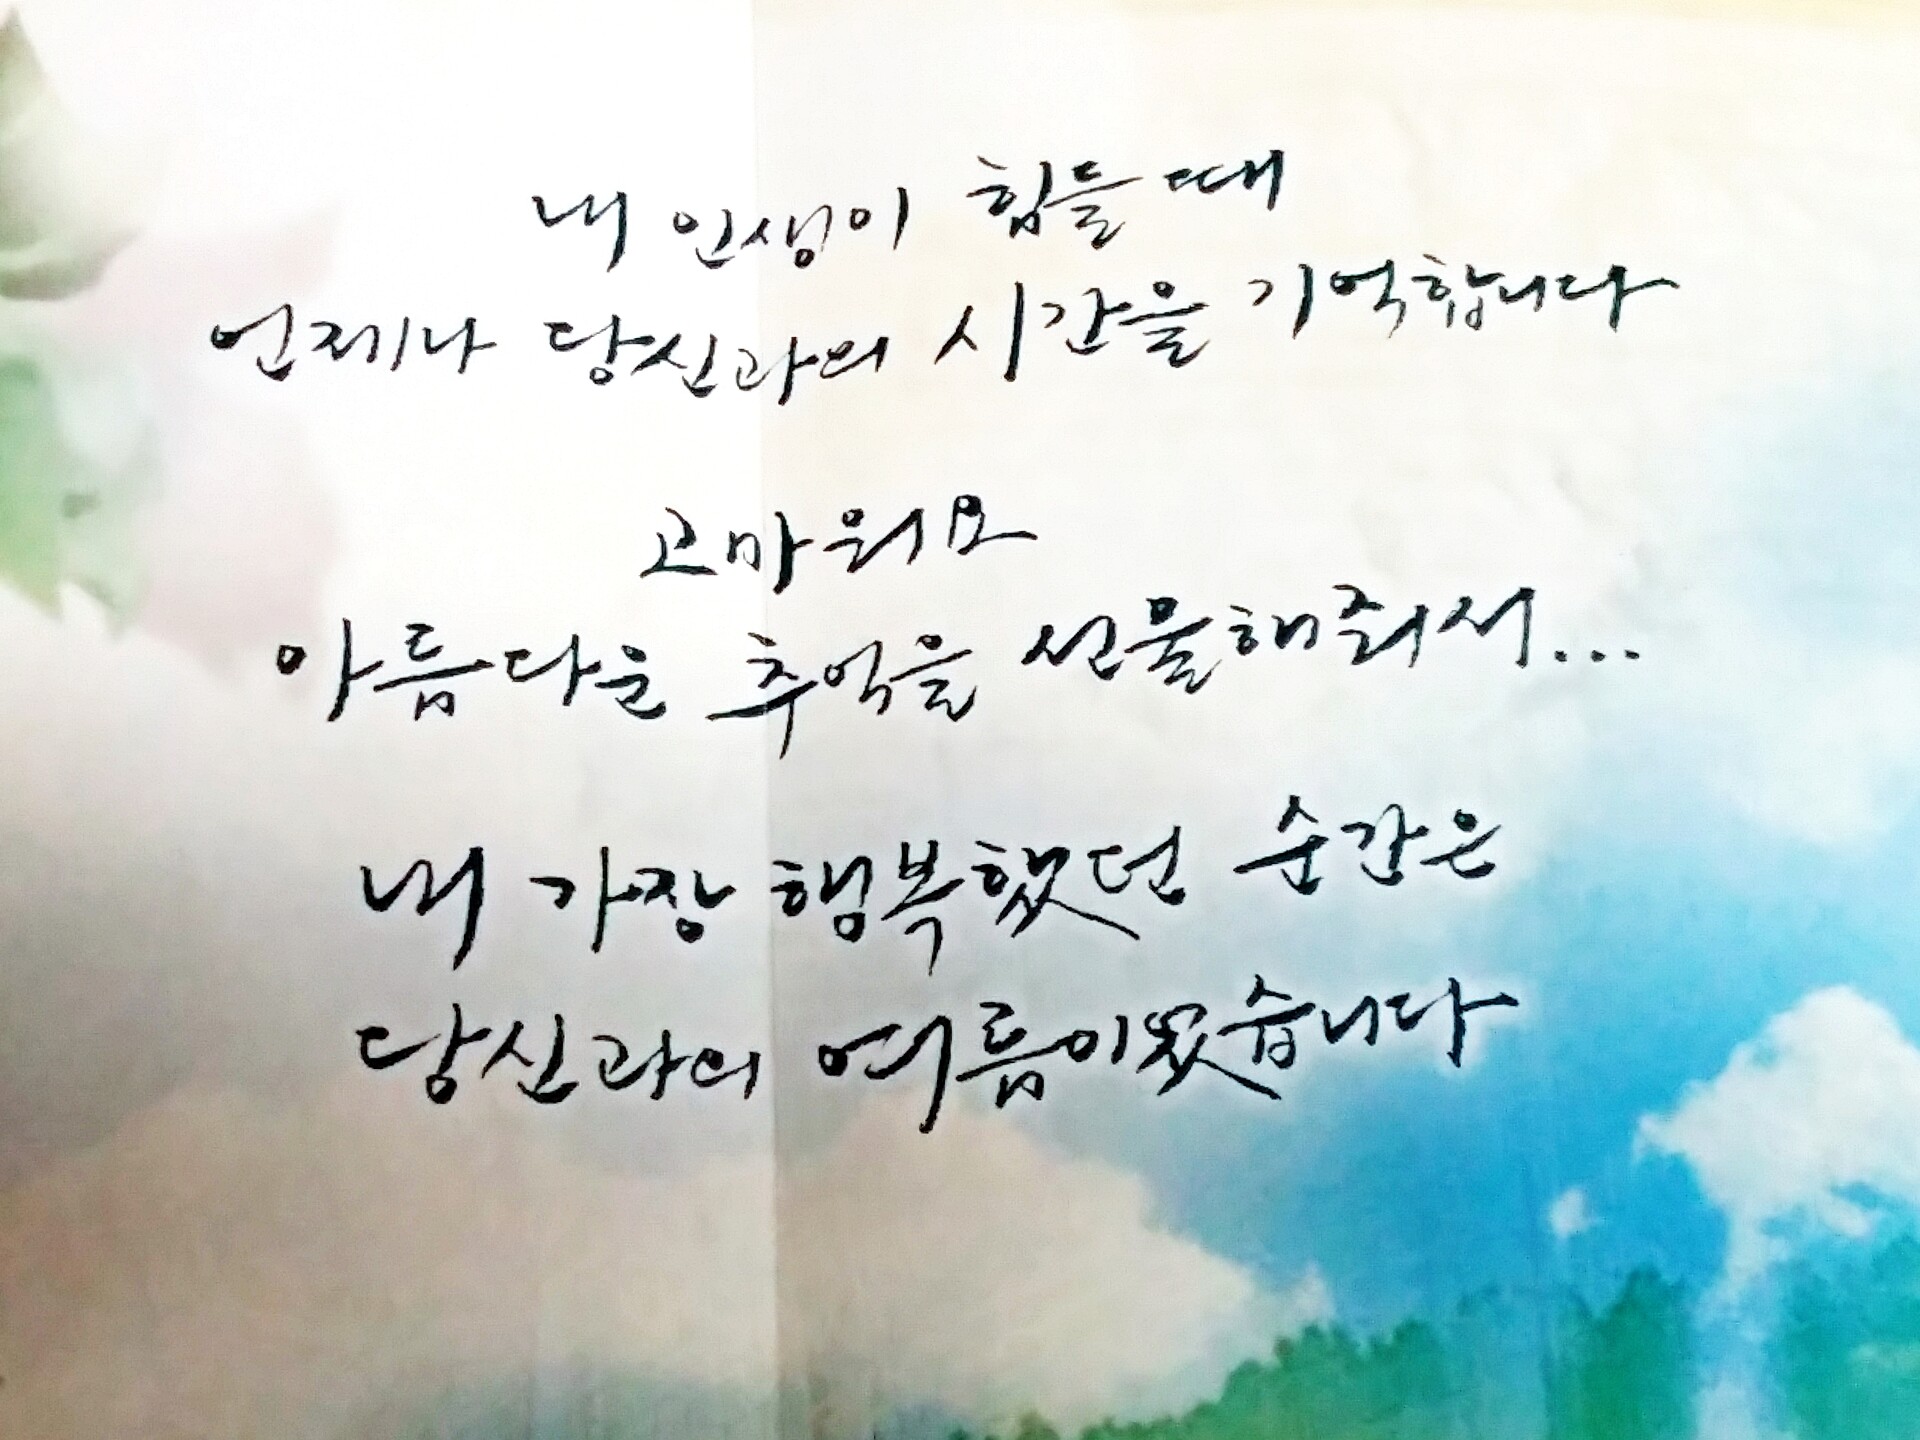 내 인생이 힘들 때
언제나 당신과의 시간을 기억합니다
고마워요
아름다운 추억을 선물해줘서...
내 가장 행복했던 순간은
당신과의 여름이었습니다